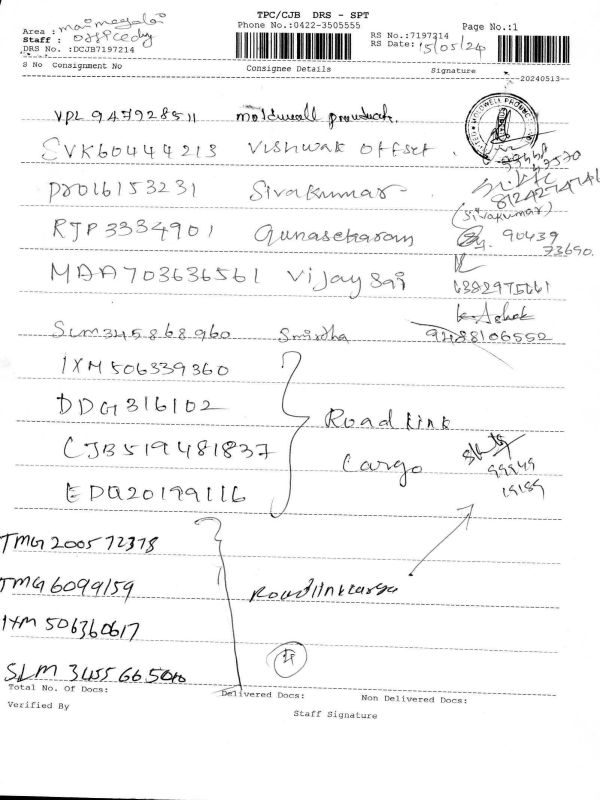 TPC/CJB DRS - SPT
Phone No.:0422-3505555
Page No.:1
Area :
Staff : office dly
DRS No. :DCJB7197214
RS No.:7197214
RS Date: 15/05/24
S No Consignment No Consignee Details Signature
--20240513--
VPL 947928511
SVK60444213 Vishwak offset
PD016153231 Sivakumar
8124274741
(Sivakumar)
RJP3334901 Gunasekaram 90439
73690.
MAA703636561 Vijay Sai
6382975061
k. Ashok
SLM345868960 Smirtha 9488106552
IXM506339360
DDG316102 Road link
CJB519481837 Cargo
99949
19189
EDG20199116
TMG200572378
TMG6099159 Roadlinkcargo
IXM 506360617
SLM 3455665
Total No. Of Docs: Delivered Docs: Non Delivered Docs:
Verified By
Staff Signature